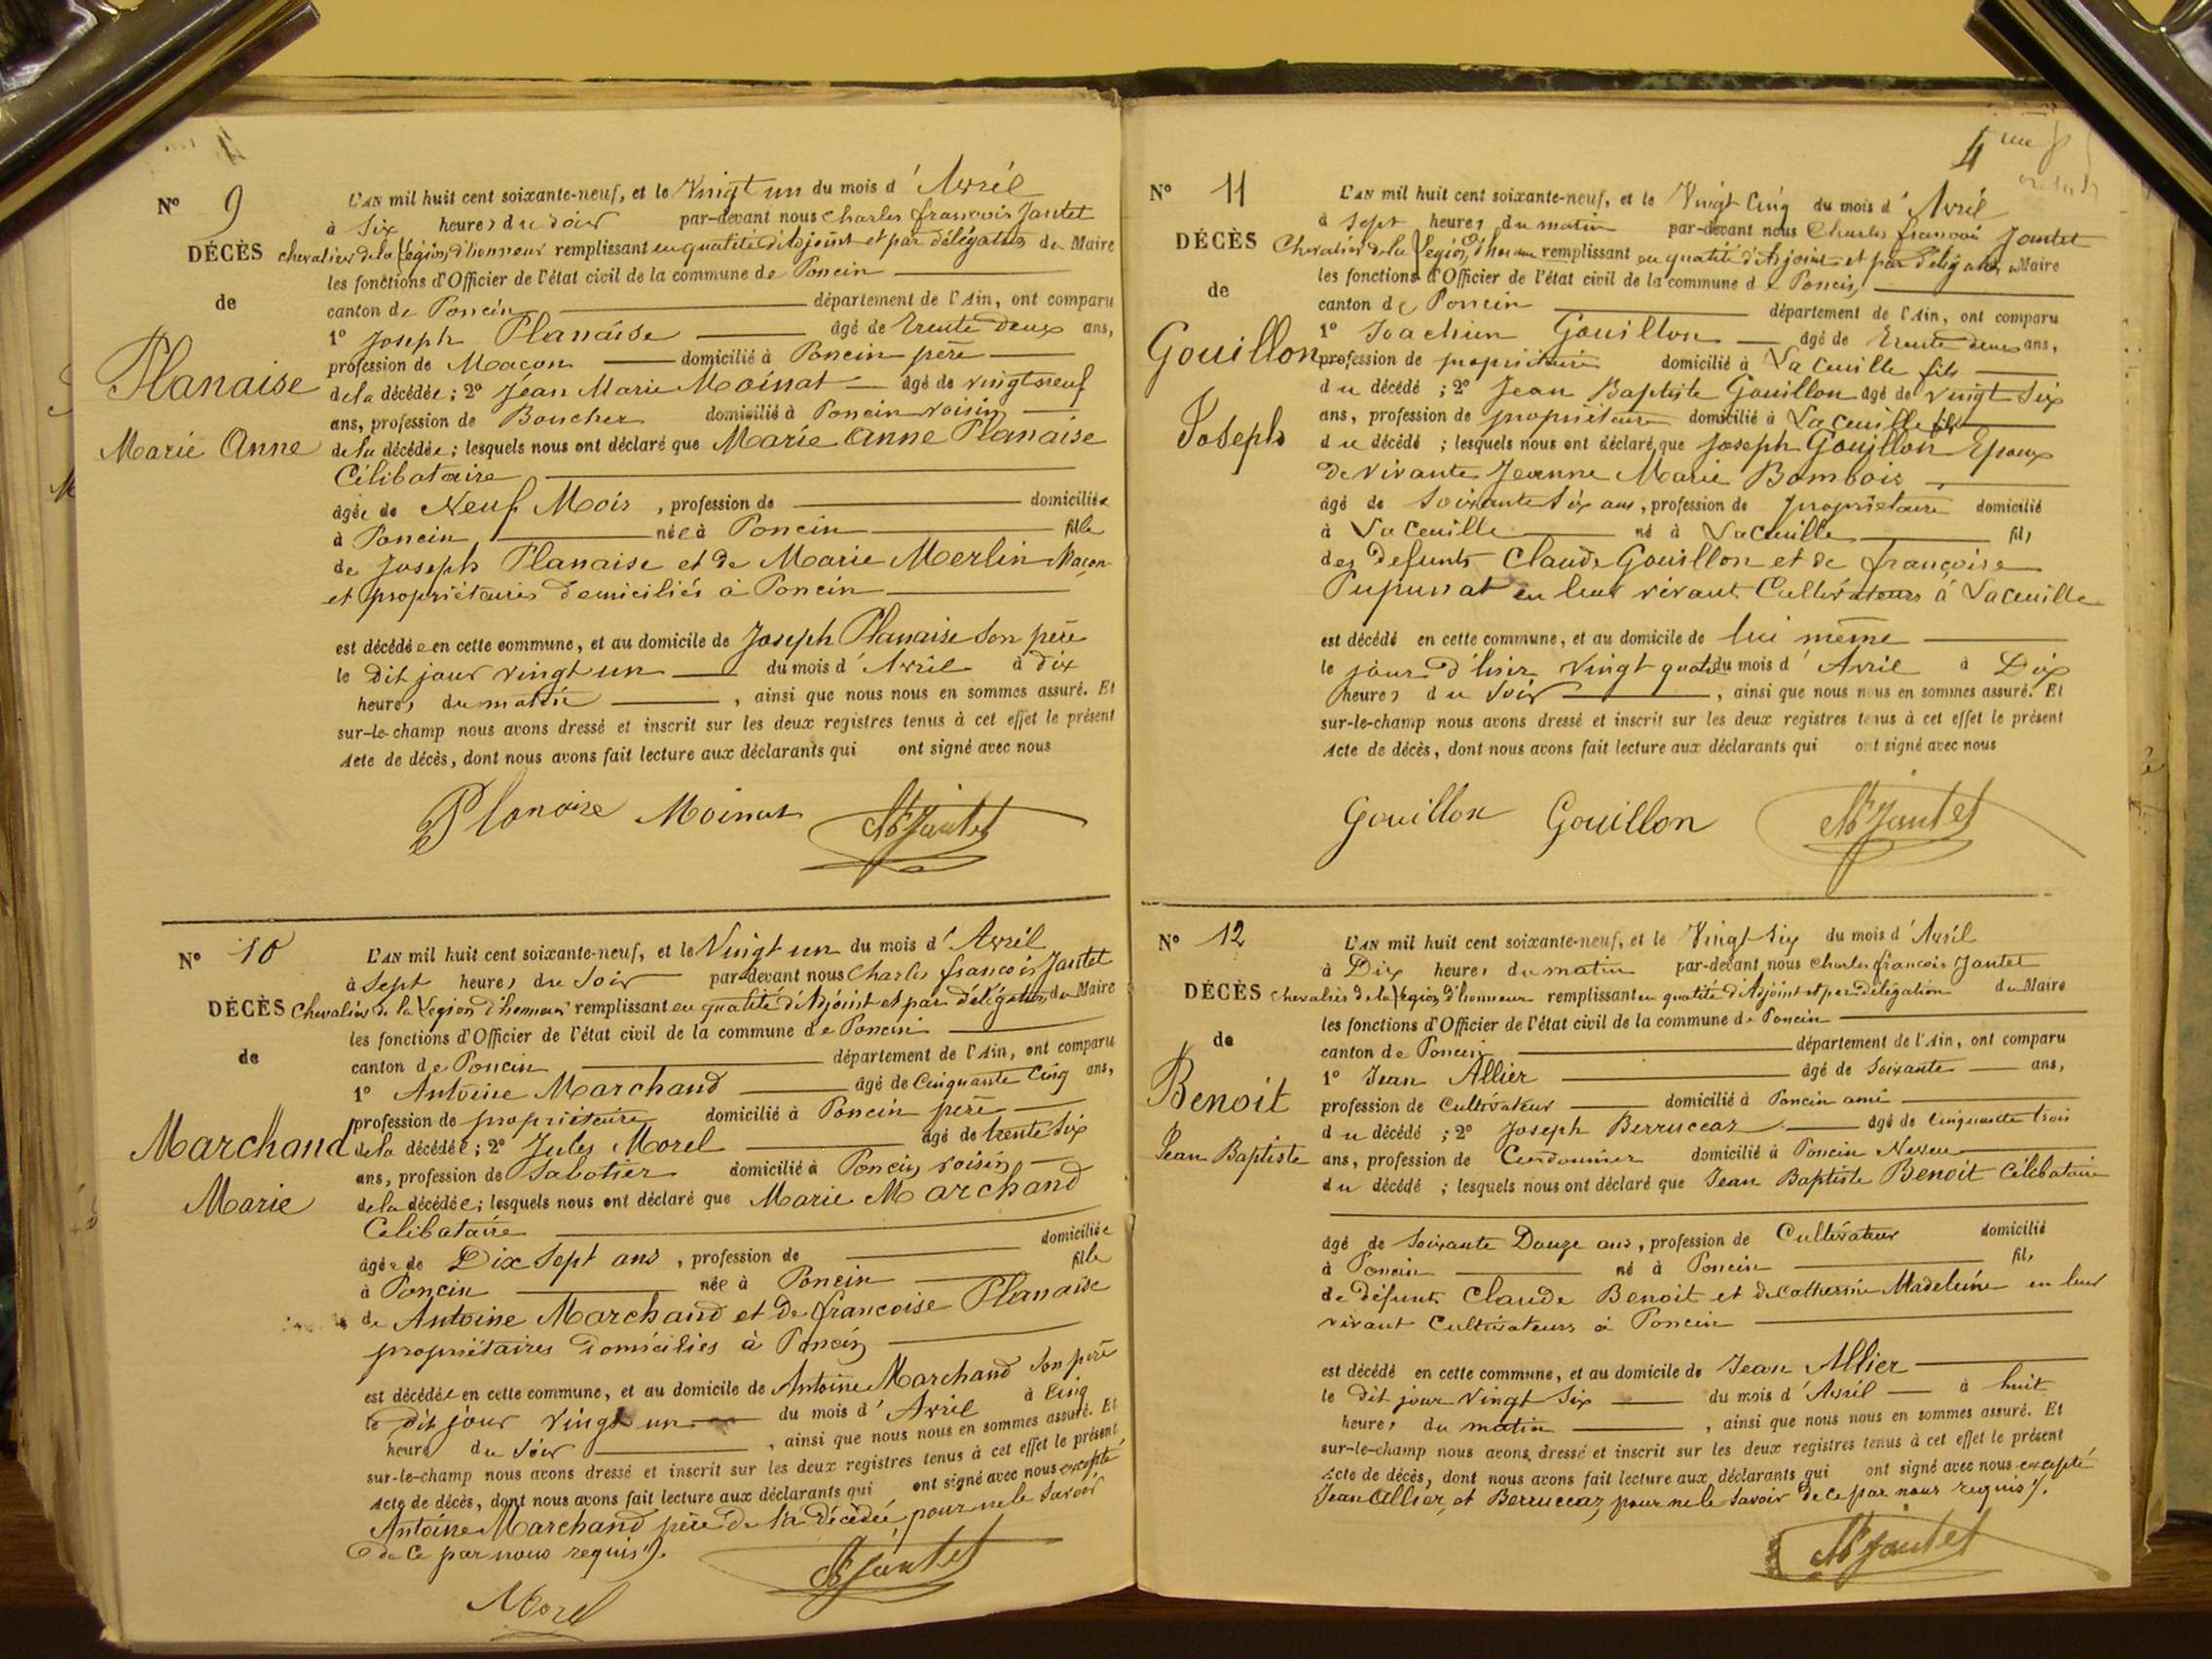 N° 9
DÉCÈS
de
Planaise
Marie Anne
L'AN mil huit cent soixante-neuf, et le Vingt un du mois d'Avril
à Six heures du soir par-devant nous Charles françois Jantet
chevalier de la Légion d'honneur remplissant en qualité d'Adjoint et par délégation du Maire
les fonctions d'Officier de l'état civil de la commune de Poncin
canton de Poncin département de l'Ain, ont comparu
1° Joseph Planaise âgé de trente deux ans,
profession de Maçon domicilié à Poncin père
de la décédée ; 2° Jean Marie Moinat âgé de vingt neuf
ans, profession de Boucher domicilié à Poncin voisin
de la décédée ; lesquels nous ont déclaré que Marie Anne Planaise
Célibataire
âgée de Neuf Mois , profession de domiciliée
à Poncin née à Poncin fille
de Joseph Planaise et de Marie Merlin Maçon
et propriétaires domiciliés à Poncin
est décédée en cette commune, et au domicile de Joseph Planaise son père
le dit jour vingt un du mois d'Avril à dix
heures du matin , ainsi que nous nous en sommes assuré. Et
sur-le-champ nous avons dressé et inscrit sur les deux registres tenus à cet effet le présent
Acte de décès, dont nous avons fait lecture aux déclarants qui ont signé avec nous
Planaise Moinat Jantet
N° 10
DÉCÈS
de
Marchand
Marie
L'AN mil huit cent soixante-neuf, et le Vingt un du mois d'Avril
à Sept heures du Soir par-devant nous Charles françois Jantet
Chevalier de la Légion d'honneur remplissant en qualité d'Adjoint et par délégation du Maire
les fonctions d'Officier de l'état civil de la commune de Poncin
canton de Poncin département de l'Ain, ont comparu
1° Antoine Marchand âgé de Cinquante Cinq ans,
profession de propriétaire domicilié à Poncin père
de la décédée ; 2° Jules Morel âgé de trente six
ans, profession de Sabotier domicilié à Poncin voisin
de la décédée ; lesquels nous ont déclaré que Marie Marchand
Celibataire
âgée de Dix Sept ans , profession de domiciliée
à Poncin née à Poncin fille
de Antoine Marchand et de françoise Planaise
propriétaires domiciliés à Poncin
est décédée en cette commune, et au domicile de Antoine Marchand son père
le dit jour vingt un du mois d'Avril à Cinq
heures du Soir , ainsi que nous nous en sommes assuré. Et
sur-le-champ nous avons dressé et inscrit sur les deux registres tenus à cet effet le présent
Acte de décès, dont nous avons fait lecture aux déclarants qui ont signé avec nous excepté
Antoine Marchand père de la décédée, pour ne le savoir
de ce par nous requis.
Morel Jantet
4me
N° 11
DÉCÈS
de
Gouillon
Joseph
L'AN mil huit cent soixante-neuf, et le Vingt Cinq du mois d'Avril
à Sept heures du matin par-devant nous Charles françois Jantet
Chevalier de la Légion d'honneur remplissant en qualité d'Adjoint et par délégation du Maire
les fonctions d'Officier de l'état civil de la commune de Poncin
canton de Poncin département de l'Ain, ont comparu
1° Joachim Gouillon âgé de trente deux ans,
profession de propriétaire domicilié à La Cueille fils
du décédé ; 2° Jean Baptiste Gouillon âgé de vingt Six
ans, profession de propriétaire domicilié à La Cueille fils
du décédé ; lesquels nous ont déclaré que Joseph Gouillon Epoux
de vivante Jeanne Marie Bombois
âgé de soixante six ans, profession de propriétaire domicilié
à La Cueille né à La Cueille fils
des defunts Claude Gouillon et de françoise
Pupunat en leur vivant Cultivateurs à La Cueille
est décédé en cette commune, et au domicile de lui même
le jour d'hier vingt quatre du mois d'Avril à Dix
heures du Soir , ainsi que nous nous en sommes assuré. Et
sur-le-champ nous avons dressé et inscrit sur les deux registres tenus à cet effet le présent
Acte de décès, dont nous avons fait lecture aux déclarants qui ont signé avec nous
Gouillon Gouillon Jantet
N° 12
DÉCÈS
de
Benoit
Jean Baptiste
L'AN mil huit cent soixante-neuf, et le Vingt Six du mois d'Avril
à Dix heures du matin par-devant nous Charles françois Jantet
chevalier de la Légion d'honneur remplissant en qualité d'Adjoint et par délégation du Maire
les fonctions d'Officier de l'état civil de la commune de Poncin
canton de Poncin département de l'Ain, ont comparu
1° Jean Allier âgé de Soixante ans,
profession de Cultivateur domicilié à Poncin ami
du décédé ; 2° Joseph Berruccaz âgé de Cinquante trois
ans, profession de Cordonnier domicilié à Poncin Neveu
du décédé ; lesquels nous ont déclaré que Jean Baptiste Benoit Célibataire
âgé de Soixante Douze ans, profession de Cultivateur domicilié
à Poncin né à Poncin fils
de défunts Claude Benoit et de Catherine Madeleine en leur
vivant Cultivateurs à Poncin
est décédé en cette commune, et au domicile de Jean Allier
le dit jour Vingt Six du mois d'Avril à huit
heures du matin , ainsi que nous nous en sommes assuré. Et
sur-le-champ nous avons dressé et inscrit sur les deux registres tenus à cet effet le présent
Acte de décès, dont nous avons fait lecture aux déclarants qui ont signé avec nous excepté
Jean Allier, et Berruccaz, pour ne le savoir de ce par nous requis.
Jantet